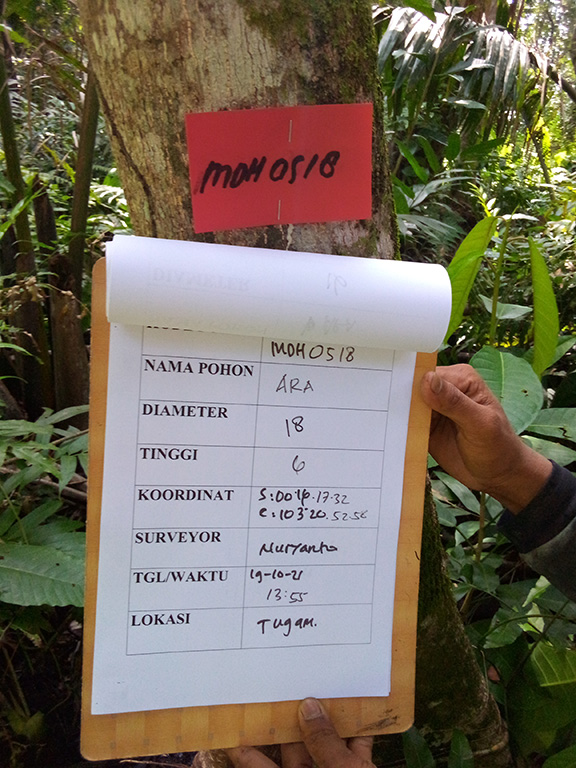 MDH0518
MDH0518
NAMA POHON
ARA
DIAMETER
18
TINGGI
6
KOORDINAT
e:103°20.52.56
SURVEYOR
Nuryanto
TGL/WAKTU
19-10-21
13:55
LOKASI
Tugam.